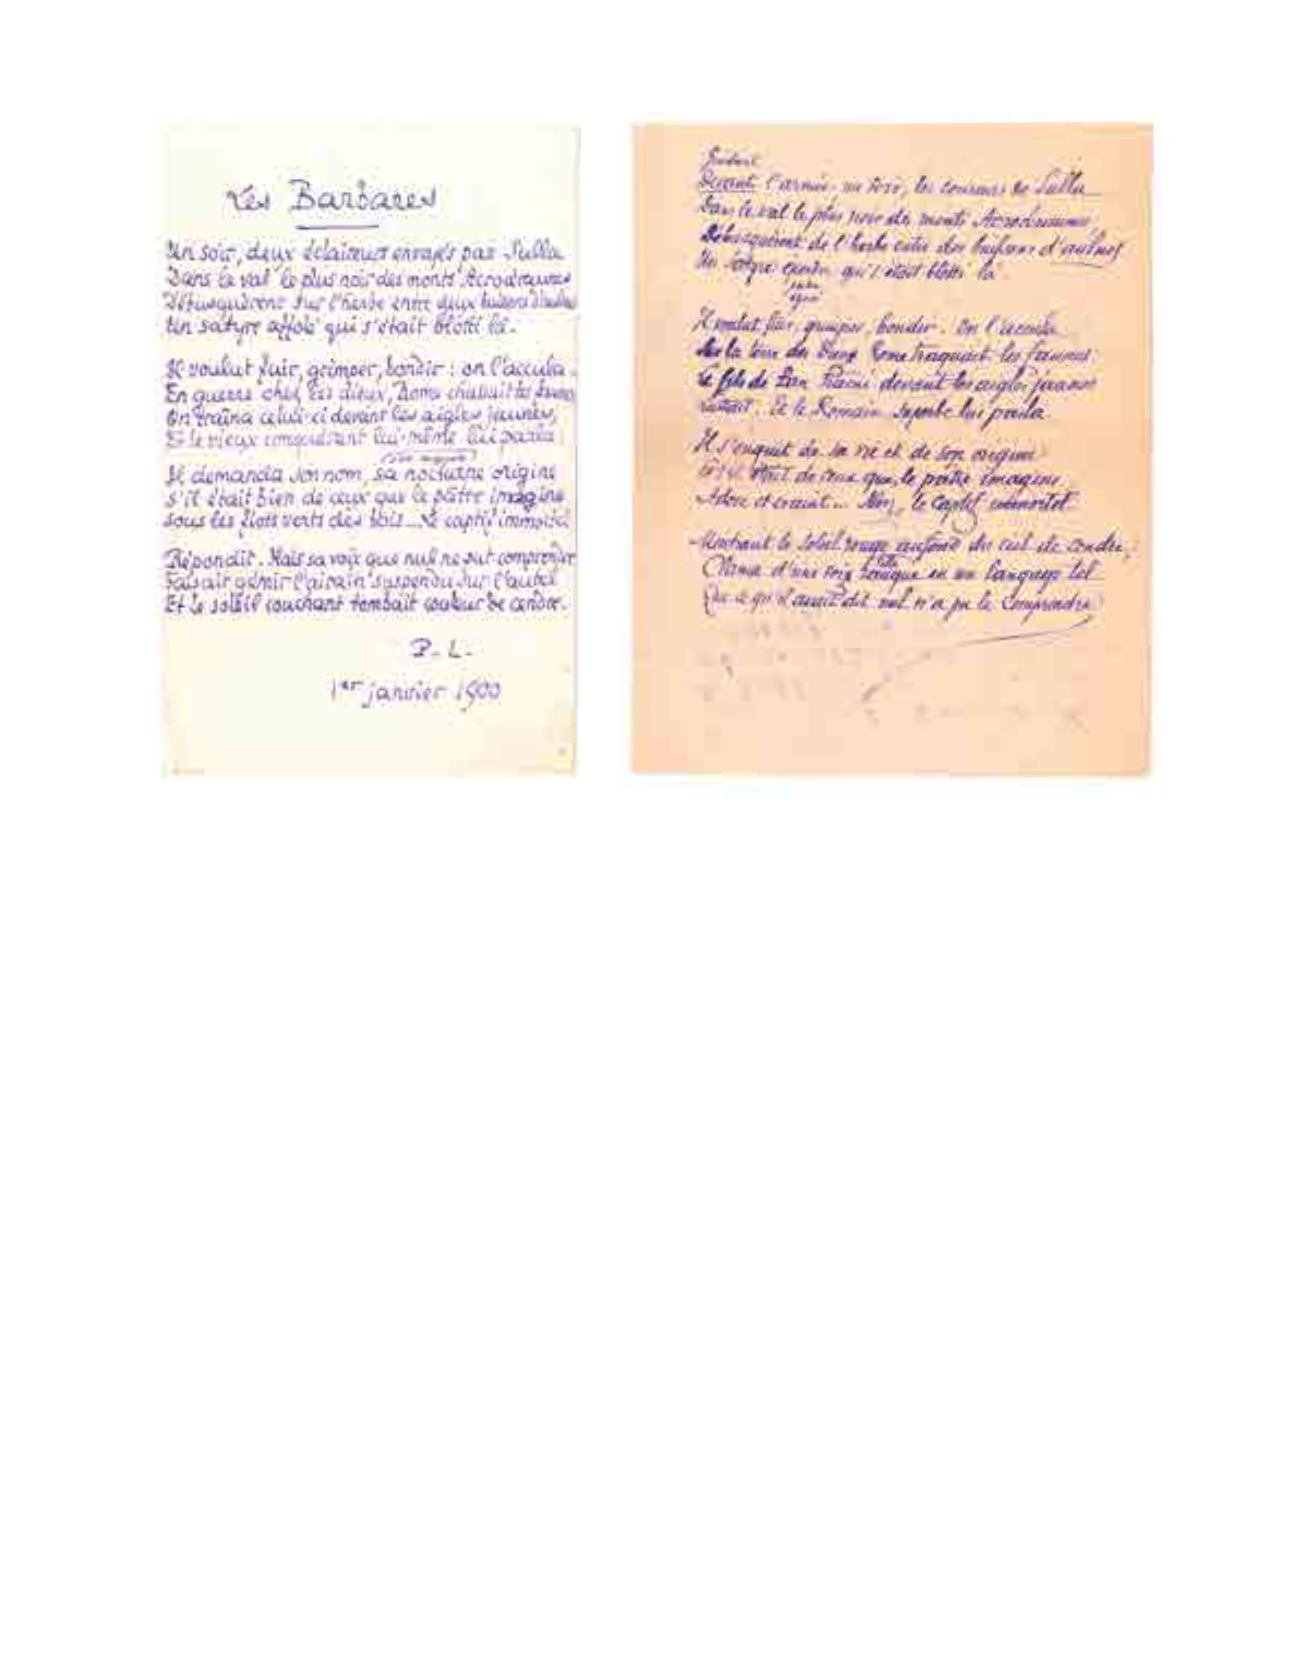 Les Barbares
Un soir, deux éclaireurs envoyés par Sulla
Dans le val le plus noir des monts Acrocéraunes
Débusquèrent sur l'herbe entre deux buissons d'aulnes
Un satyre affolé qui s'était blotti là.
Il voulut fuir, grimper, bondir : on l'accula.
En guerre chez les dieux, Rome chassait les faunes
On traîna celui-ci devant les aigles jaunes,
Et le vieux conquérant lui-même lui parla :
Il demanda son nom, sa nocturne origine
S'il était bien de ceux que le pâtre imagine
Sous les flots verts des bois... Le captif immortel
Répondit. Mais sa voix que nul ne sut comprendre
Faisait gémir l'airain suspendu sur l'autel
Et le soleil couchant tombait couleur de cendre.
P. L.
1er janvier 1900
Devant l'armée, un soir, les coureurs de Sulla
Dans le val le plus noir des monts Acrocéraunes,
Débusquèrent de l'herbe entre des buissons d'aulnes
Un satyre qui s'était blotti là.
Il voulut fuir, grimper, bondir. On l'accula.
Sur la terre des Dieux Rome traquait les faunes.
Le fils de Pan devant les aigles jaunes
Et le Romain superbe lui parla.
Il s'enquit de sa vie et de son origine
S'il était de ceux que le pâtre imagine
Adore et craint... le captif immortel
Montrant le soleil rouge au fond du ciel de cendre,
Clama d'une voix en un langage tel
Que ce qu'il avait dit nul n'a pu le comprendre